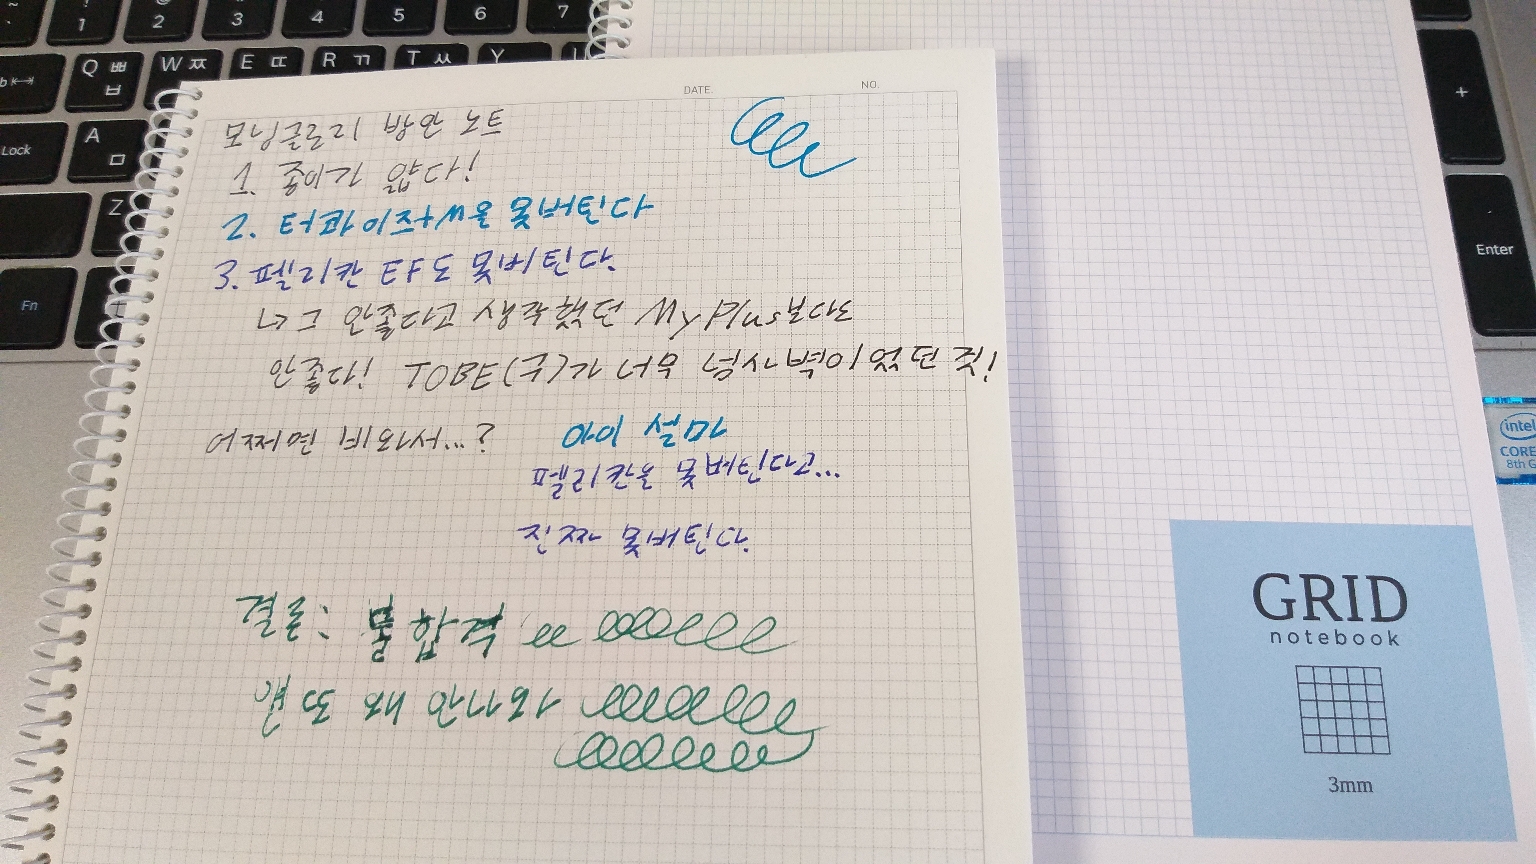 ~ ! 1 @ 2 # 3 $ 4 % 5 ^ 6 & 7
Q ㅃ ㅂ W ㅉ E ㄸ R ㄲ T ㅆ Y
Lock A ㅁ
Z
Fn
+
Enter
intel
CORE
8th G
DATE. NO.
모닝글로리 방안 노트
1. 종이가 얇다!
2. 터콰이즈+M을 못버틴다
3. 펠리칸 EF도 못버틴다.
↳ 그 안좋다고 생각했던 My Plus보다도
안좋다! TOBE(구)가 너무 넘사벽이었던 것!
어쩌면 비와서...?
아이 설마
펠리칸을 못버틴다고...
진짜 못버틴다.
결론: 불합격 ㄹㄹ
왜 안나와
GRID
notebook
3mm